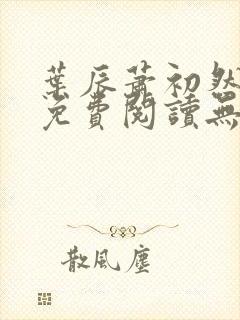 葉辰蕭初然
免費閱讀無
散風塵